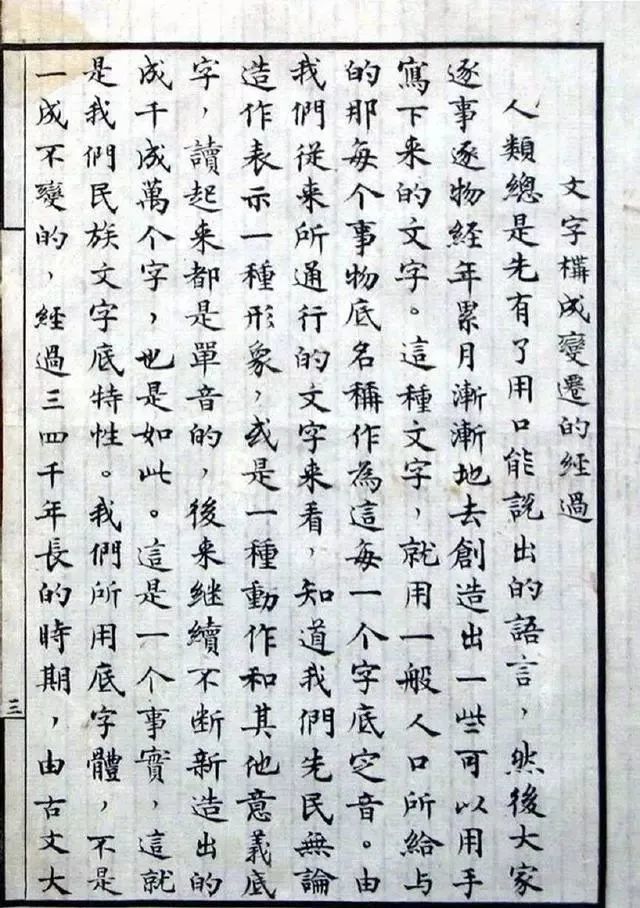 文字構成變遷的經過
人類總是先有了用口能説出的語言，然後大家
逐事逐物经年累月漸漸地去創造出一些可以用手
寫下来的文字。這種文字，就用一般人口所給与
的那每个事物底名稱作為這每一个字底定音。由
我們從来所通行的文字来看，知道我們先民無論
造作表示一種形象，或是一種動作和其他意義底
字，讀起来都是單音的，後来継續不断新造出的
成千成萬个字，也是如此。這是一个事實，這就
是我們民族文字底特性。我們所用底字體，不是
一成不變的，經過三四千年長的時期，由古文大
三